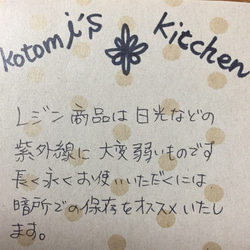 kotomi's Kitchen
レジン商品は日光などの
紫外線に大変弱いものです
長く永くお使いいただくには
暗所での保存をオススメいたし
ます。